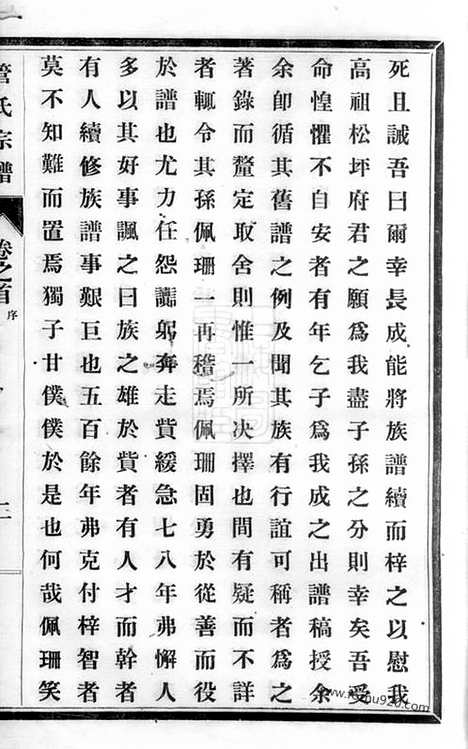 死且誠吾曰爾幸長成能將族譜續而梓之以慰我
高祖松坪府君之願為我盡子孫之分則幸矣吾受
命惶懼不自安者有年乞子為我成之出譜稿授余
余卽循其舊譜之例及聞其族有行誼可稱者為之
著錄而釐定取舍則惟一所决擇也間有疑而不詳
者輒令其孫佩珊一再稽焉佩珊固勇於從善而役
於譜也尤力任怨讟躬奔走貲緩急七八年弗懈人
多以其好事諷之曰族之雄於貲者有人才而幹者
有人續修族譜事艱巨也五百餘年弗克付梓智者
莫不知難而置焉獨子甘僕僕於是也何哉佩珊笑
管氏宗譜
卷之首
序